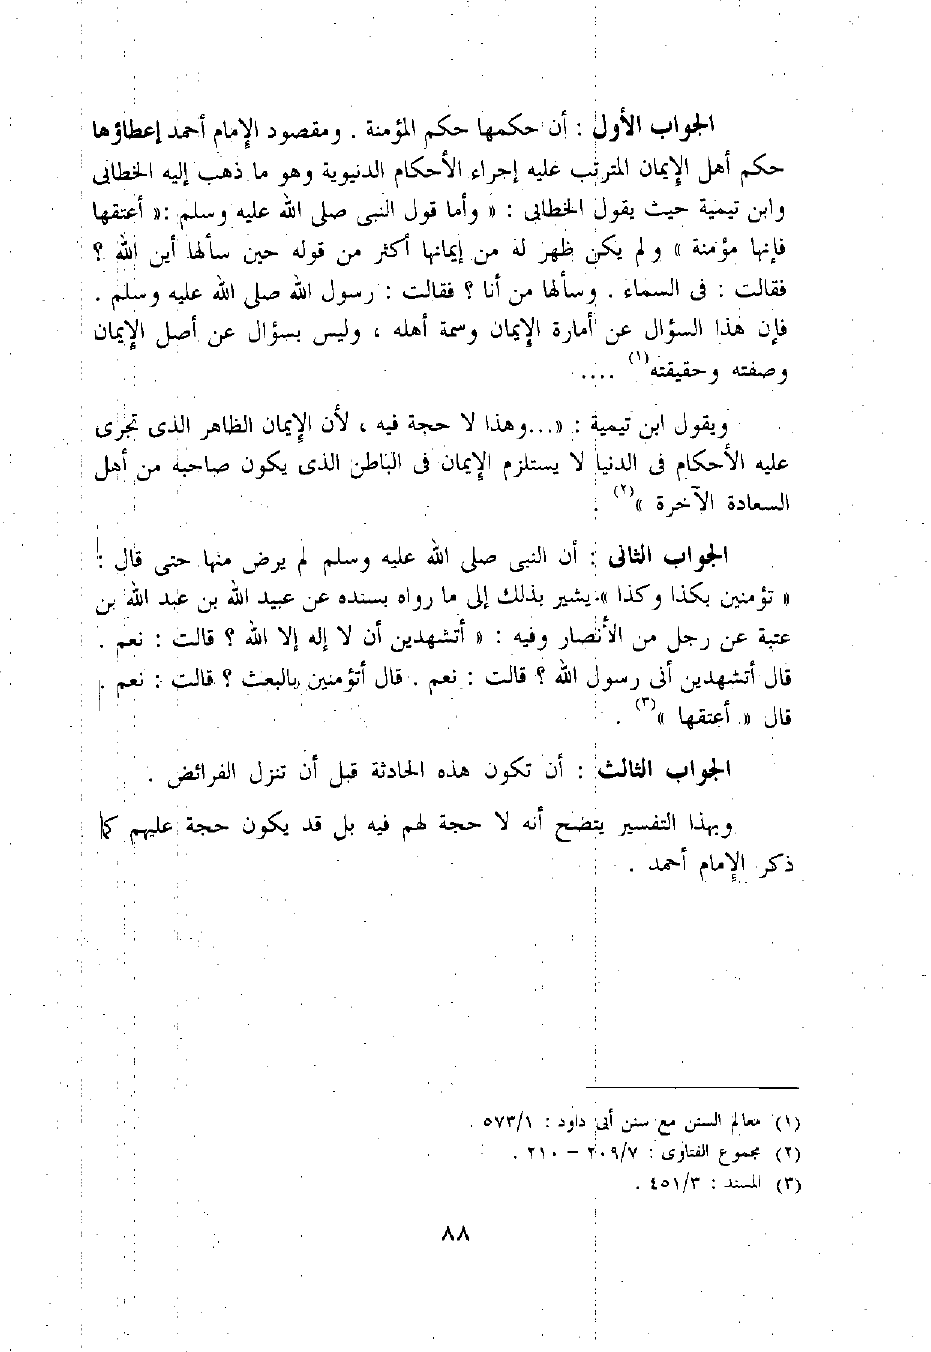 الجواب الأول : أن حكمها حكم المؤمنة . ومقصود الإمام أحمد إعطاؤها
حكم أهل الإيمان المترتب عليه إجراء الأحكام الدنيوية وهو ما ذهب إليه الخطابى
وابن تيمية حيث يقول الخطابى : « وأما قول النبى صلى الله عليه وسلم :« أعتقها
فإنها مؤمنة » ولم يكن ظهر له من إيمانها أكثر من قوله حين سألها أين الله ؟
فقالت : فى السماء . وسألها من أنا ؟ فقالت : رسول الله صلى الله عليه وسلم .
فإن هذا السؤال عن أمارة الإيمان وسمة أهله ، وليس بسؤال عن أصل الإيمان
وصفته وحقيقته(١) ....
ويقول ابن تيمية : «...وهذا لا حجة فيه ، لأن الإيمان الظاهر الذى تجرى
عليه الأحكام فى الدنيا لا يستلزم الإيمان فى الباطن الذى يكون صاحبه من أهل
السعادة الآخرة »(٢) .
الجواب الثانى : أن النبى صلى الله عليه وسلم لم يرض منها حتى قال :
« تؤمنين بكذا وكذا » يشير بذلك إلى ما رواه بسنده عن عبيد الله بن عبد الله بن
عتبة عن رجل من الأنصار وفيه : « أتشهدين أن لا إله إلا الله ؟ قالت : نعم .
قال أتشهدين أنى رسول الله ؟ قالت : نعم . قال أتؤمنين بالبعث ؟ قالت : نعم .
قال « أعتقها »(٣) .
الجواب الثالث : أن تكون هذه الحادثة قبل أن تنزل الفرائض .
وبهذا التفسير يتضح أنه لا حجة لهم فيه بل قد يكون حجة عليهم كما
ذكر الإمام أحمد .
(١) معالم السنن مع سنن أبى داود : ٥٧٣/١ .
(٢) مجموع الفتاوى : ٢٠٩/٧ – ٢١٠ .
(٣) المسند : ٤٥١/٣ .
٨٨